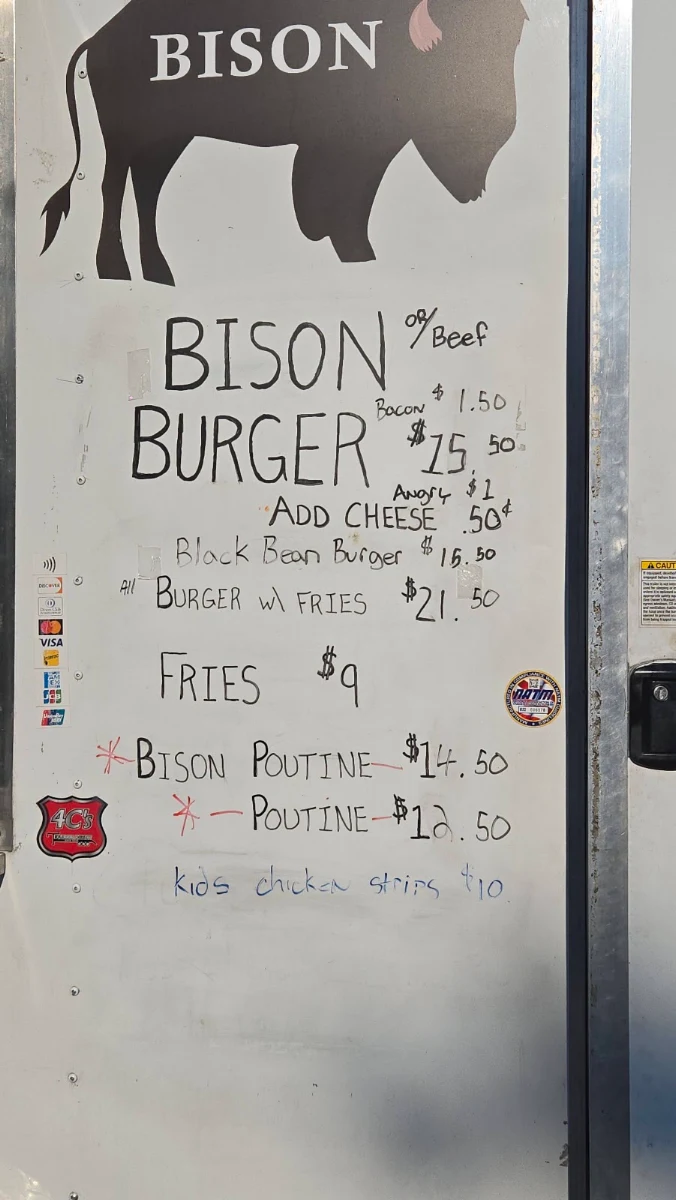 BISON
BISON OR/Beef
Bacon $ 1.50
BURGER $15.50
Angry $1
ADD CHEESE .50¢
Black Bean Burger $15.50
All BURGER w\ FRIES $21.50
FRIES $9
DISCOVER
VISA
*-BISON POUTINE-$14.50
4C's
*-POUTINE-$12.50
kids chicken strips $10